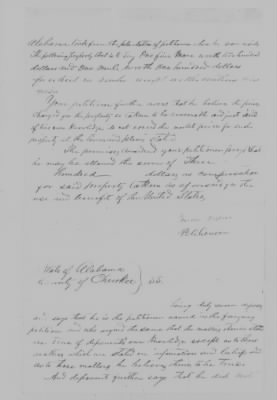 Alabama took from the plantation of petitioner when he was
The following property that is to say One fine Mare worth two hundred
dollars and One Mule, worth one hundred dollars
for which no voucher receipt or other writing was
given
Your petitioner further avers that he believes the prices
charged for the property so taken to be reasonable and just and
of his own knowledge to not exceed the market price for such
property at the time and place stated.
The premises considered your petitioner prays that
he may be allowed the sum of Three
Hundred dollars as compensation
for said property taken as aforesaid for the
use and benefit of the United States,
Petitioner
State of Alabama
County of Cherokee } SS.
being duly sworn deposes
and says that he is the petitioner named in the foregoing
petition and who signed the same that the matters therein stated
are True of deponents own Knowledge except as to those
matters which are stated on information and belief and
as to those matters he believes them to be True.
And deponent further says that he did not